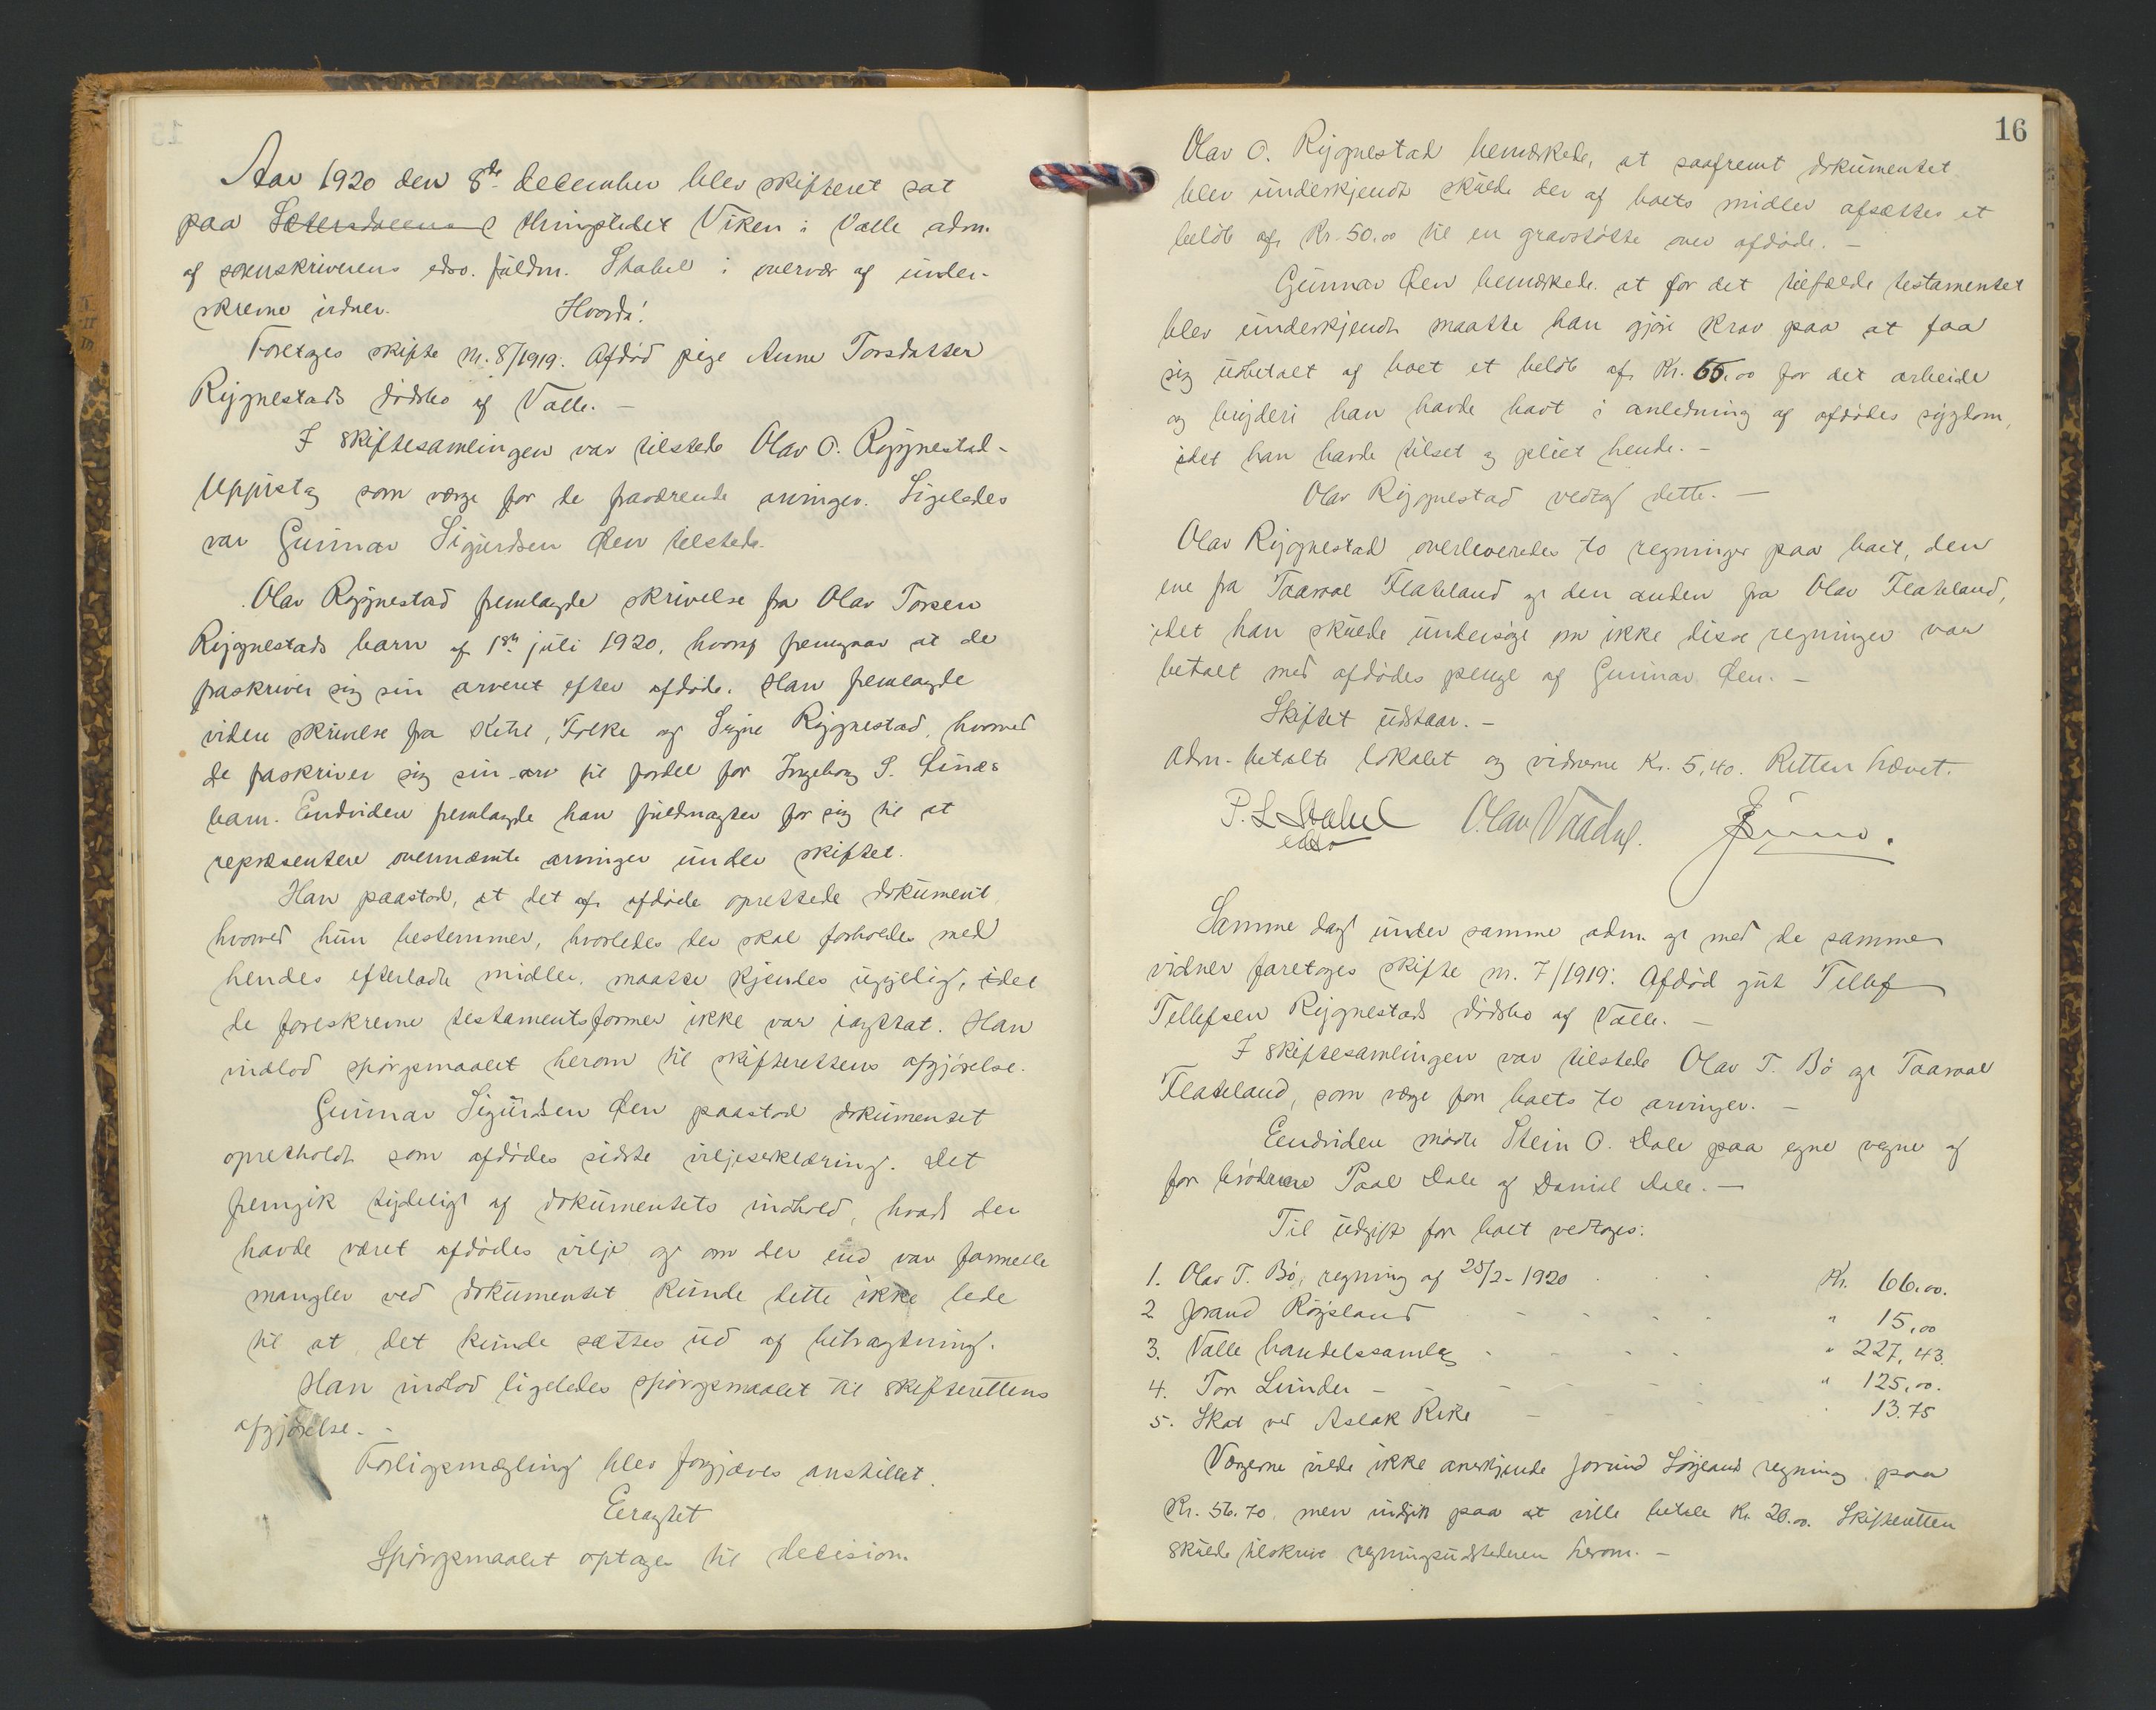 Aar 1920 den 8de december blev skifteret sat
paa Sætersdalens thingstedet Viken i Valle adm.
af sorenskriverens edsv. fuldm. Stabel i overvær af under-
skrevne vidner. Hvorda!
Foretoges skifte nr. 8/1919. Afdød pige Anne Torsdatter
Rygnestads dødsbo af Valle. —
I skiftesamlingen var tilstede Olav O. Rygnestad-
Uppistog som værge for de fraværende arvinger. Ligeledes
var Gunnar Sigurdsen Øen tilstede.
Olav Rygnestad fremlagde skrivelse fra Olav Torsen
Rygnestads barn af 1ste juli 1920, hvoraf fremgaar at de
fraskriver sig sin arveret efter afdøde. Han fremlagde
videre skrivelse fra Ketil, Folke og Signe Rygnestad, hvorved
de fraskriver sig sin arv til fordel for Ingeborg S.
barn. Endvidere fremlagde han fuldmagter for sig til at
repræsentere ovennævnte arvinger under skiftet.
Han paastod, at det af afdøde oprettede dokument,
hvorved hun bestemmer, hvorledes der skal forholdes med
hendes efterladte midler, maatte kjendes ugyldig, idet
de foreskrevne testamentsformer ikke var iagttat. Han
indlod spørgsmaalet herom til skifterettens afgjørelse.
Gunnar Sigurdsen Øen paastod dokumentet
opretholdt som afdødes sidste viljeserklæring. Det
fremgik tydeligt af dokumentets indhold, hvad der
havde været afdødes vilje og om der end var formelle
mangler ved dokumentet kunde dette ikke lede
til at det kunde sættes ud af betragtning.
Han indlod ligeledes spørgsmaalet til skifterettens
afgjørelse. -
Forligsmægling blev forgjæves anstillet.
Eeragtet
Spørgsmaalet optages til decision.
16
Olav O. Rygnestad bemærkede, at saafremt dokumentet
blev underkjendt skulde der af boets midler afsættes et
beløb af Kr. 50.00 til en gravstøtte over afdøde. —
Gunnar Øen bemærkede at for det tilfælde testamentet
blev underkjendt maatte han gjøre krav paa at faa
sig udbetalt af boet et beløb af Kr. 65.00 for det arbeide
og bryderi han havde havt i anledning af afdødes sygdom,
idet han havde tilset og pleiet hende. —
Olav Rygnestad vedtog dette. —
Olav Rygnestad overleveredes to regninger paa boet, den
ene fra Taaraal Flateland og den anden fra Olav Flateland,
idet han skulde undersøge om ikke disse regninger var
betalt med afdødes penge af Gunnar Øen. —
Skiftet udstaar. —
Adm. betalte lokalet og vidnerne Kr. 5,40. Retten hævet.
P. L. Stabel Olav
edsv
Samme dag under samme adm. og med de samme
vidner foretoges skifte nr. 7/1919: Afdød gut Tellef
Tellefsen Rygnestads dødsbo af Valle. —
I skiftesamlingen var tilstede Olav T. Bø og Taaraal
Flateland, som værge for boets to arvinger. —
Eendvidere mødte Stein O. Dale paa egne vegne og
for brødrene Paal Dale og Daniel Dale. —
Til udgift for boet vedtoges:
1. Olav T. Bø, regning af 25/2-1920 Kr. 66.00.
2 Jorand Røysland " 15,00
3. Valle handelssamlag " 227,43.
4. Tor Lunden " 125,00.
5. Skat ved Aslak Rike " 13.75
Værgerne vilde ikke anerkjende regning paa
Kr. 56.70, men indgik paa at ville betale Kr. 20.00. Skifteretten
skulde tilskrive regningsudstederen herom. —